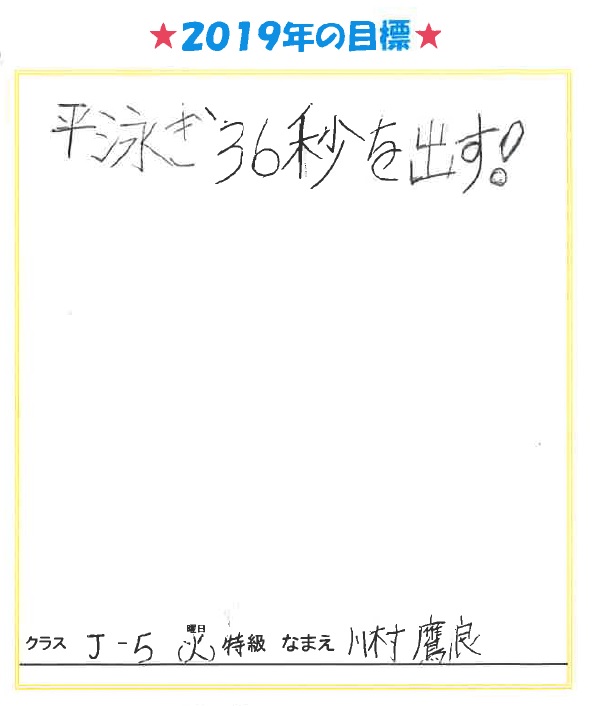 ★2019年の目標★
平泳ぎ36秒を出す!
クラス J-5 火曜日 特級 なまえ 川村鷹良